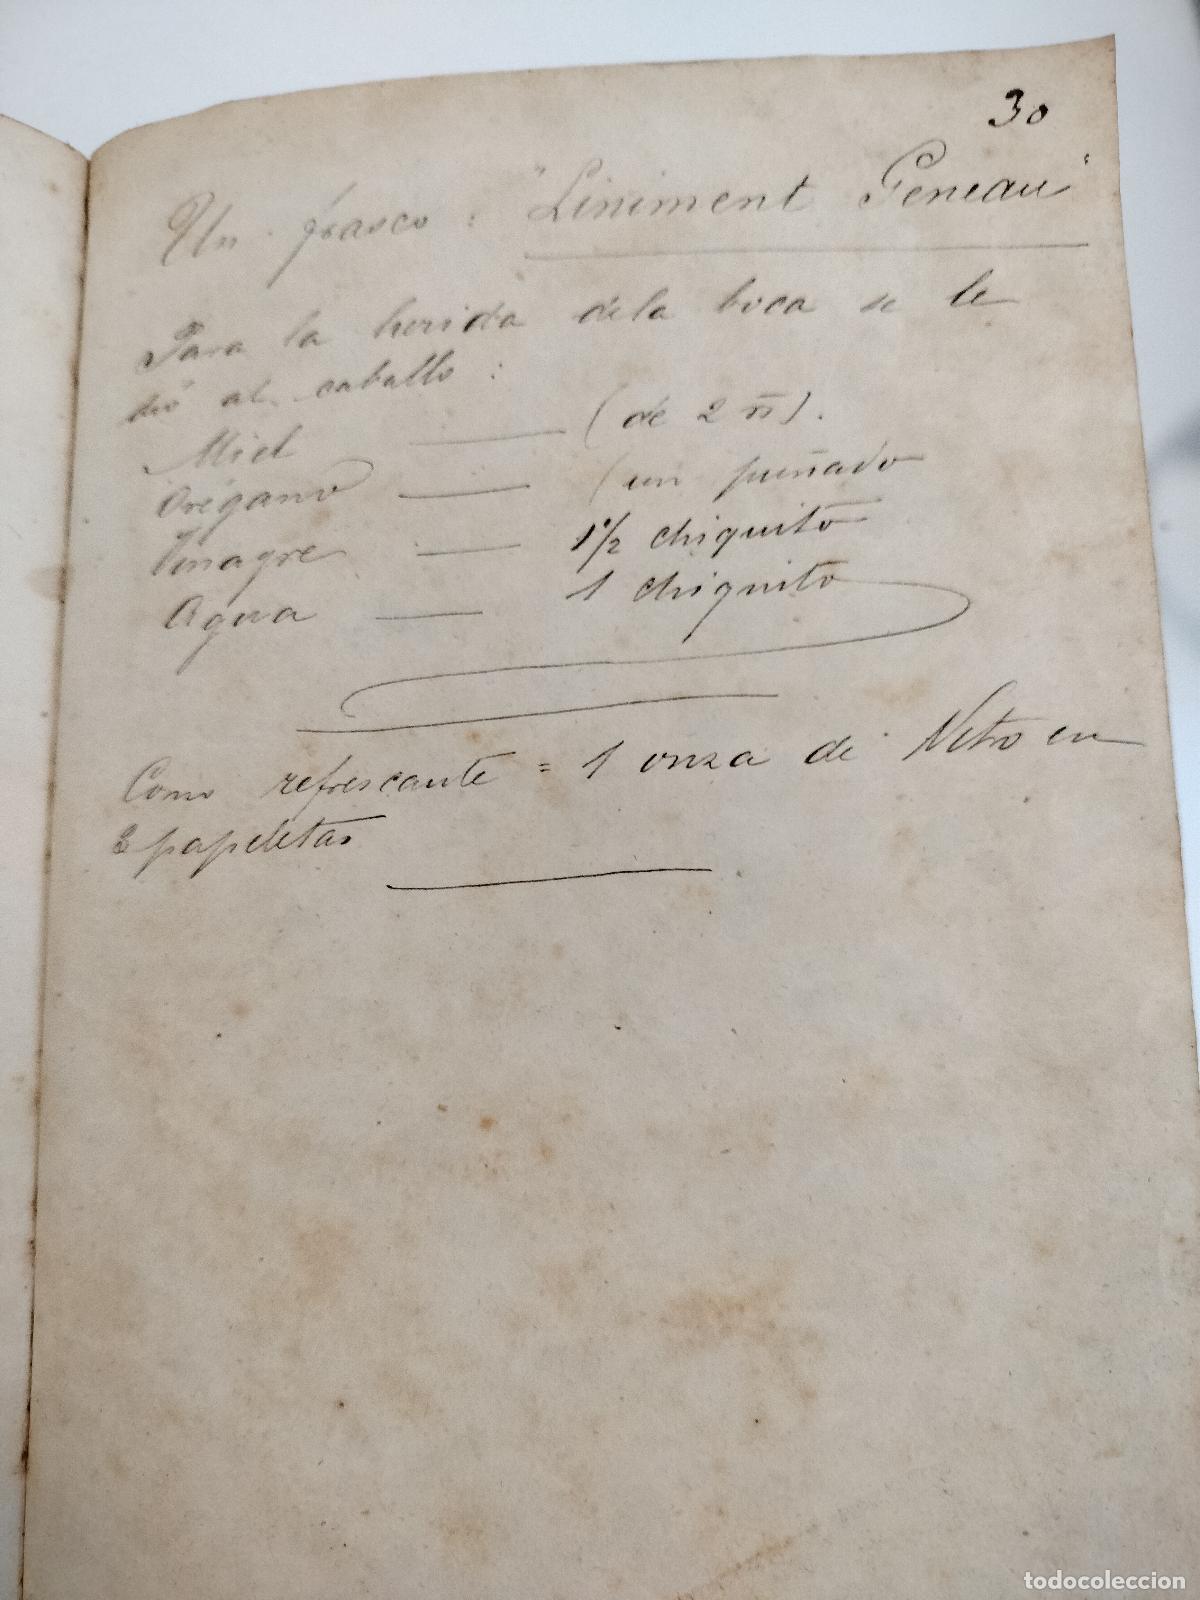 30
Un frasco : "Liniment Geneau"
Para la herida dela boca se le
dió al caballo :
Miel — (de 2 rs).
Orégano — (un puñado
Vinagre — 1 1/2 chiquito
Agua — 1 chiquito
Como refrescante = 1 onza de Nitro en
papeletas
todocoleccion